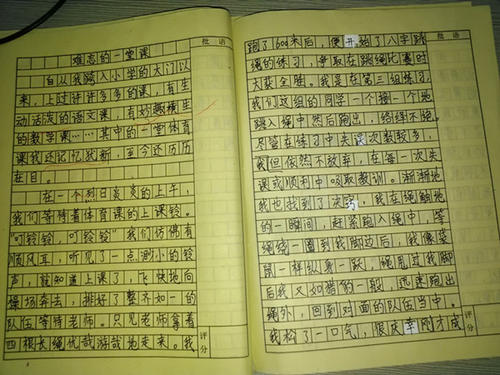 批语
难忘的一堂课
自从我踏入小学的大门以
来，上过许许多多的课，有生
动活泼的语文课，有妙趣横生
的数学课……其中的一堂体育
课我还记忆犹新，至今还历历
在目。
在一个烈日炎炎的上午，
我们等待着体育课的上课铃。
“叮铃铃，叮铃铃”我们仿佛有
顺风耳，听见了一点测小的铃
声，就知道上课了，飞快地向
操场奔去，排好了整齐如一的
队伍等待老师。只见老师拿着
四根长绳优哉游哉地走来。我
评分
批语
跑了600米后，便开始了八字跳
绳的练习，争取在跳绳比赛时
大获全胜。我是在第三组练习，
我们这组的同学一个接一个地
跳入绳中然后跑出，络绎不绝。
尽管在练习中失误次数较多，
我但依然不放弃，在每一次失
误或顺利中吸取教训。渐渐地
我也找到了决窍，我在绳触地
的一瞬间，赶紧跑入绳中，等
绳绕一圈到我脚边后，我像袋
鼠一样纵身一跃，绳甩过我脚
后我又如猎豹一般，迅速跑出
绳外，回到对面的队伍当中。
我松了一口气，很庆幸刚才成
评分